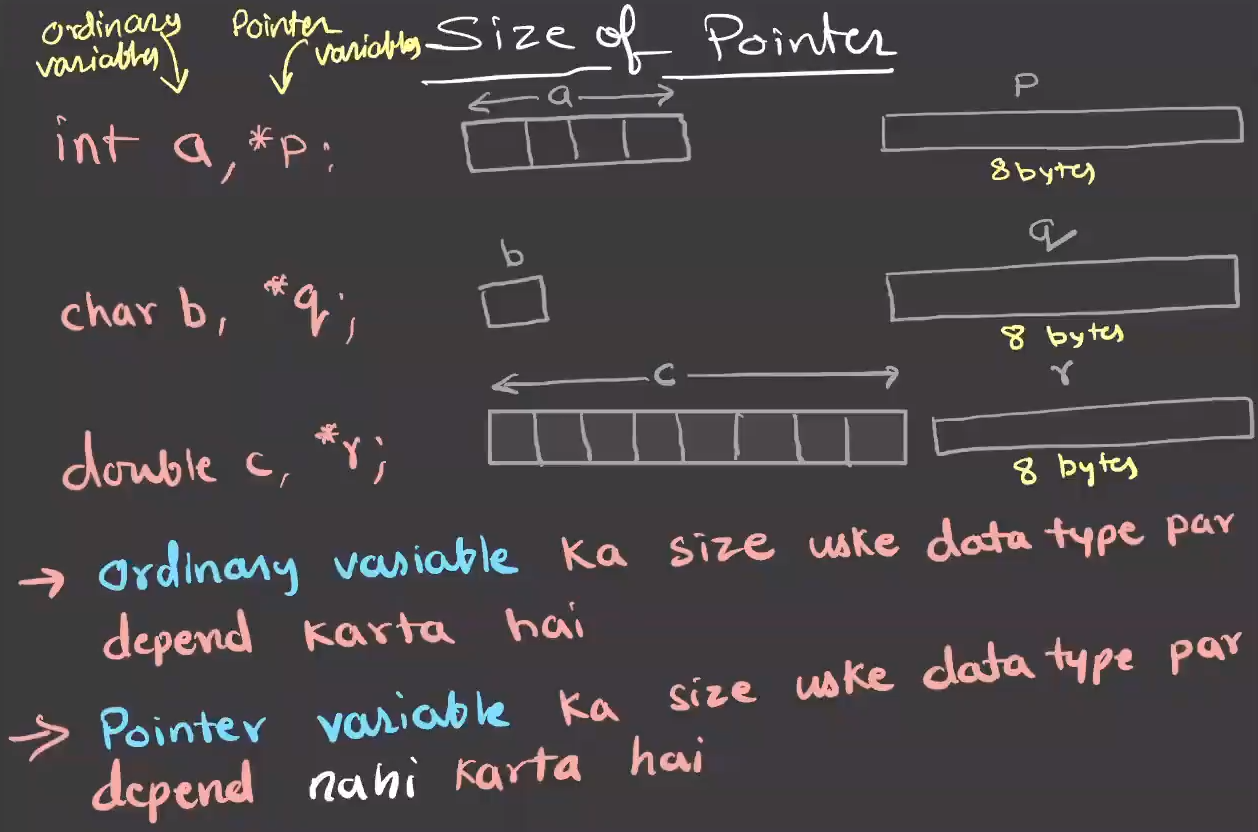 Ordinary variables
Pointer variables
Size of Pointer
int a, *p;
a
p
8 bytes
char b, *q;
b
q
8 bytes
double c, *r;
c
r
8 bytes
→ Ordinary variable ka size uske data type par
depend karta hai
→ Pointer variable ka size uske data type par
depend nahi karta hai